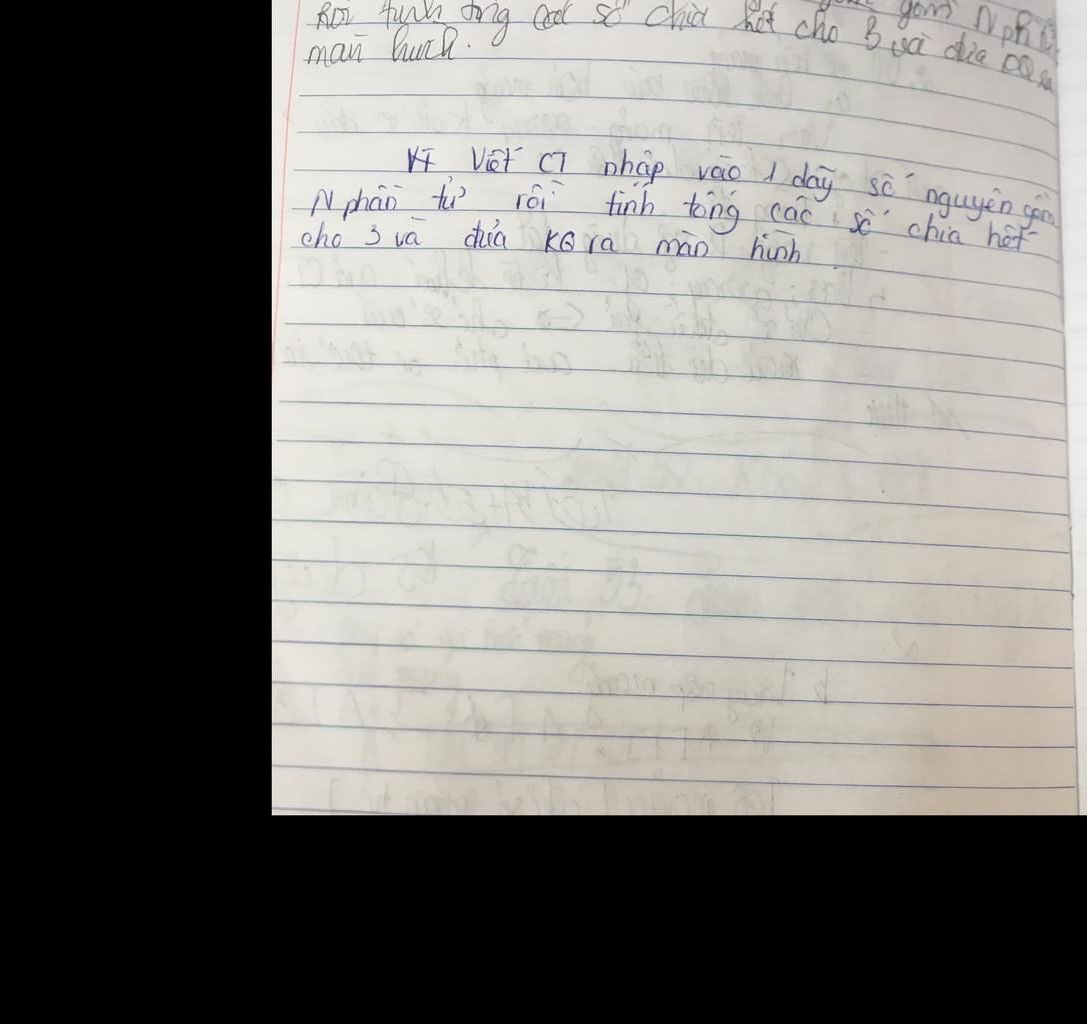 gồm N ph
Rồi tính tổng các số chia hết cho 3 và đưa
màn hình.
Viết CT nhập vào 1 dãy số nguyên gồm
N phần tử rồi tính tổng các số chia hết
cho 3 và đưa KQ ra màn hình.